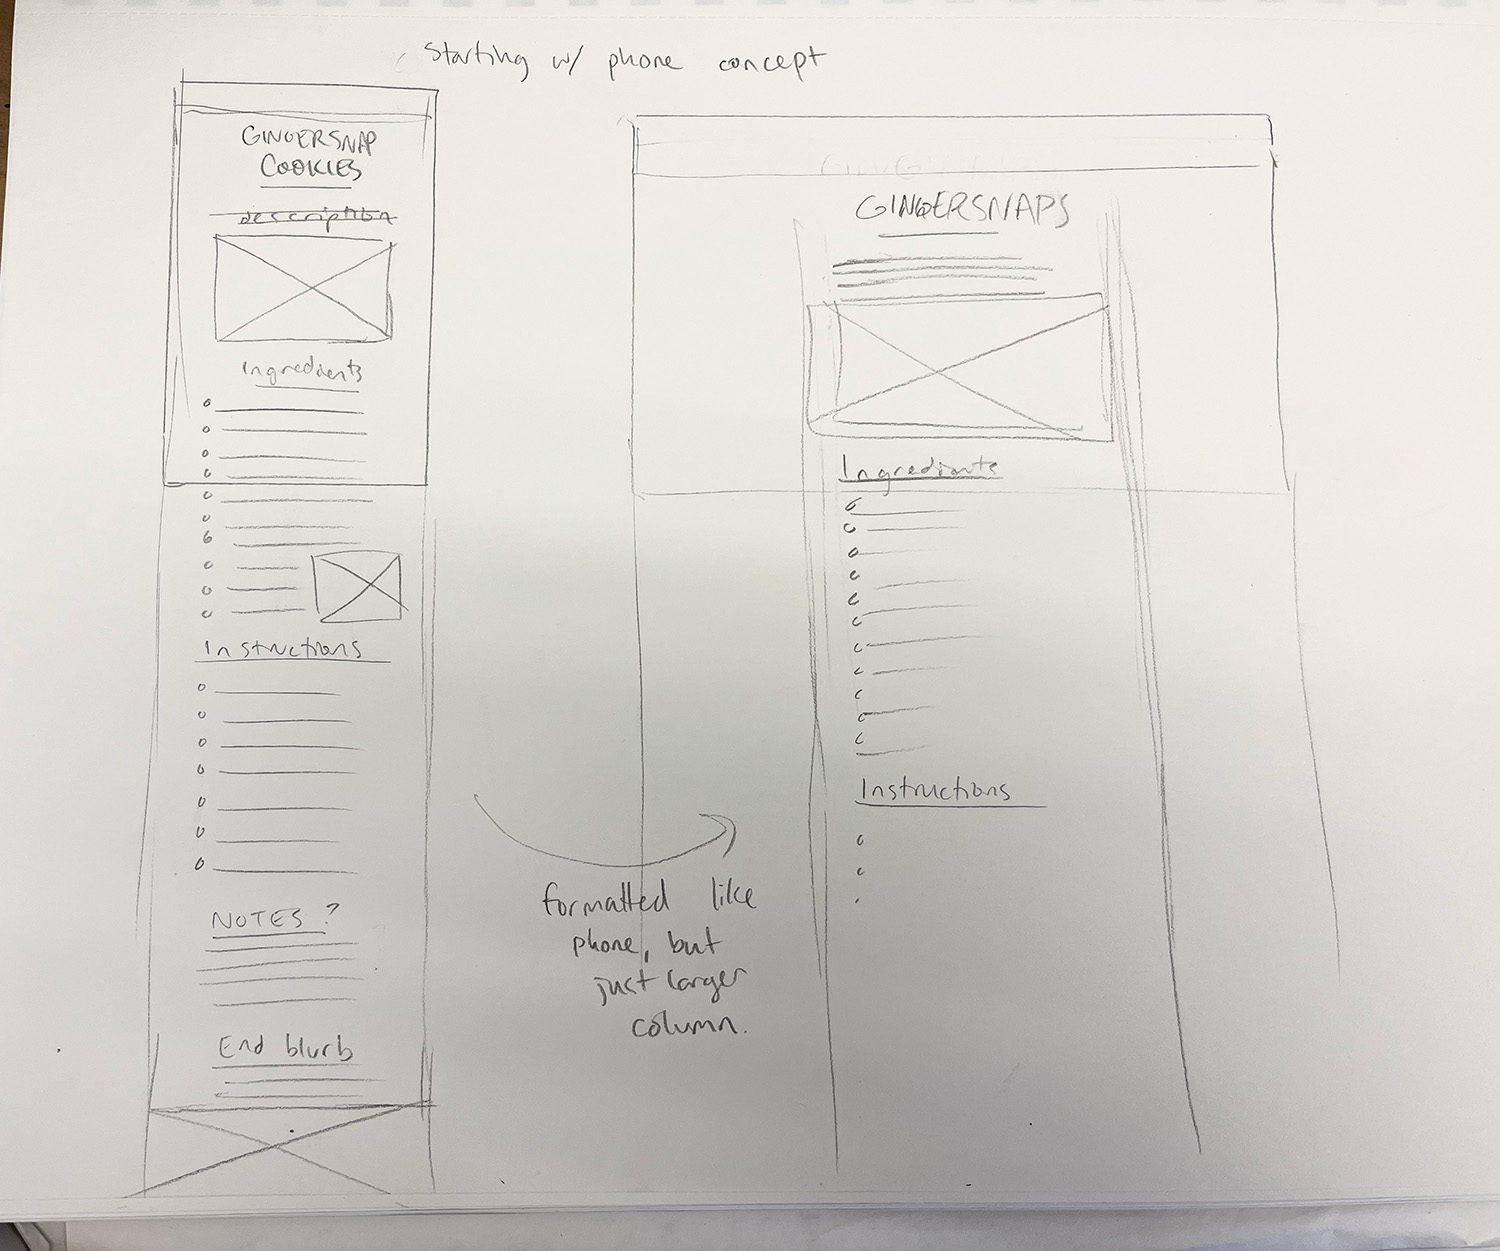 Starting w/ phone concept
GINGERSNAP
COOKIES
description
Ingredients
Instructions
NOTES?
End blurb
formatted like
phone, but
just larger
column.
GINGERSNAPS
Ingredients
Instructions